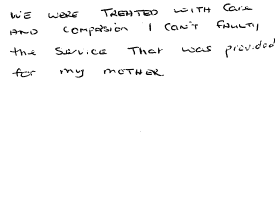 WE WERE TREATED WITH Care
AND COMPASSION I CAN'T FAULT
the Service That was provided
for my MOTHER.